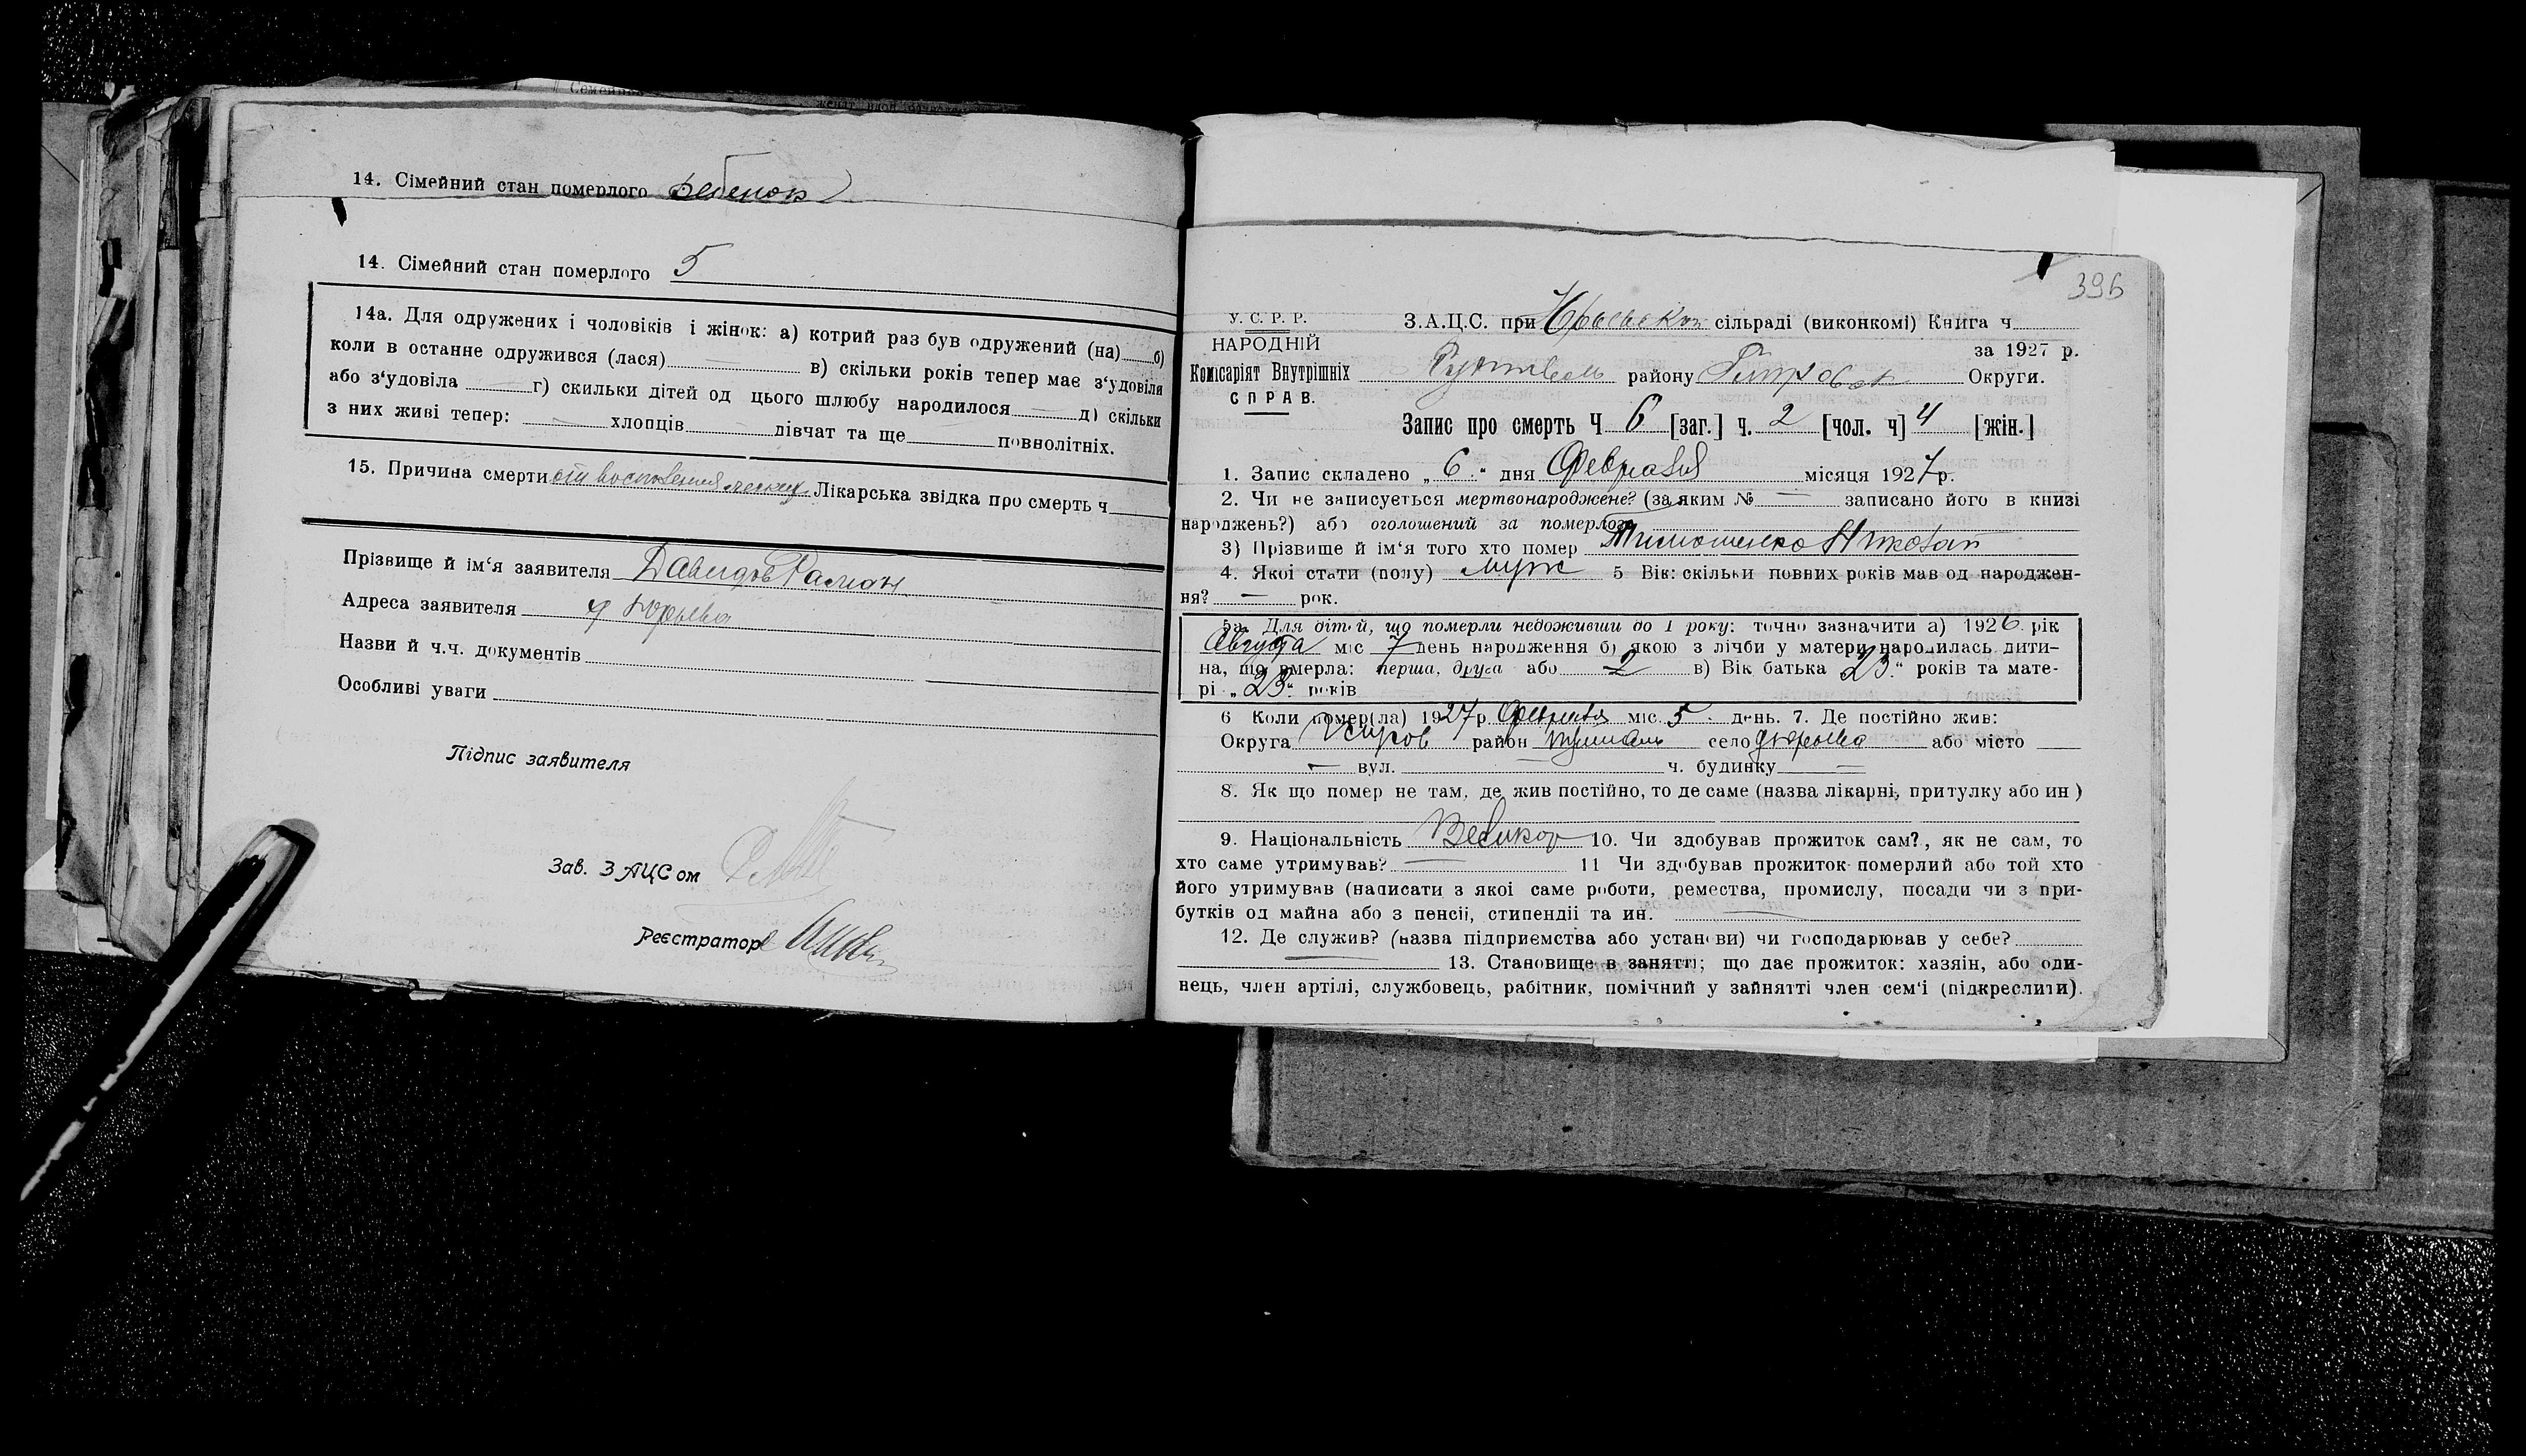 14. Сімейний стан померлого ребенок
14. Сімейний стан померлого 5
14а. Для одружених і чоловіків і жінок: а) котрий раз був одружений (на) б)
коли в останне одружився (лася) — в) скільки років тепер має з'удовіля
або з'удовіла — г) скильки дітей од цього шлюбу народилося — д) скільки
з них живі тепер: — хлопців — дівчат та ще повнолітніх.
15. Причина смерти от воспаления легких Лікарська звідка про смерть ч
Прізвище й ім'я заявителя Давидов Раман
Адреса заявителя Юрьева
Назви й ч.ч. документів
Особливі уваги
Підпис заявителя
Зав. ЗАЦСом
Реєстратор
396
У. С. Р. Р.
НАРОДНІЙ
Комісаріят Внутрішніх
СПРАВ.
З.А.Ц.С. при сільраді (виконкомі) Книга ч
за 1927 р.
Путивель району Округи.
Запис про смерть Ч 6 [заг.] ч. 2 [чол. ч] 4 [жін.]
1. Запис складено „ 6 " дня Февраля місяця 1927 р.
2. Чи не записується мертвонароджене? (за яким № — записано його в книзі
народжень?) або оголошений за померлого
3) Прізвище й ім'я того хто помер Тимошенко Николай
4. Якоі стати (полу) муж 5 Вік: скільки повних років мав од народжен-
ня? — рок.
5а. Для дітей, що померли недоживши до 1 року: точно зазначити а) 1926 рік
Августа міс 7 день народження б) якою з лічби у матери народилась дити-
на, що вмерла: перша, друга або 2 в) Вік батька 23 " років та мате-
рі „ 23 " років
6 Коли помер(ла) 1927 р. Февраля міс. 5 день. 7. Де постійно жив:
Округа район село або місто
— вул. — ч. будинку —
8. Як що помер не там, де жив постійно, то де саме (назва лікарні, притулку або ин )
9. Національність Великор 10. Чи здобував прожиток сам?, як не сам, то
хто саме утримував? — 11 Чи здобував прожиток померлий або той хто
його утримував (написати з якоі саме роботи, ремества, промислу, посади чи з при-
бутків од майна або з пенсії, стипендіі та ин. —
12. Де служив? (назва підприемства або установи) чи господарював у себе?
— 13. Становище в занятті; що дає прожиток: хазяін, або оди-
нець, член артілі, службовець, рабітник, помічний у зайнятті член сем'і (підкреслити).